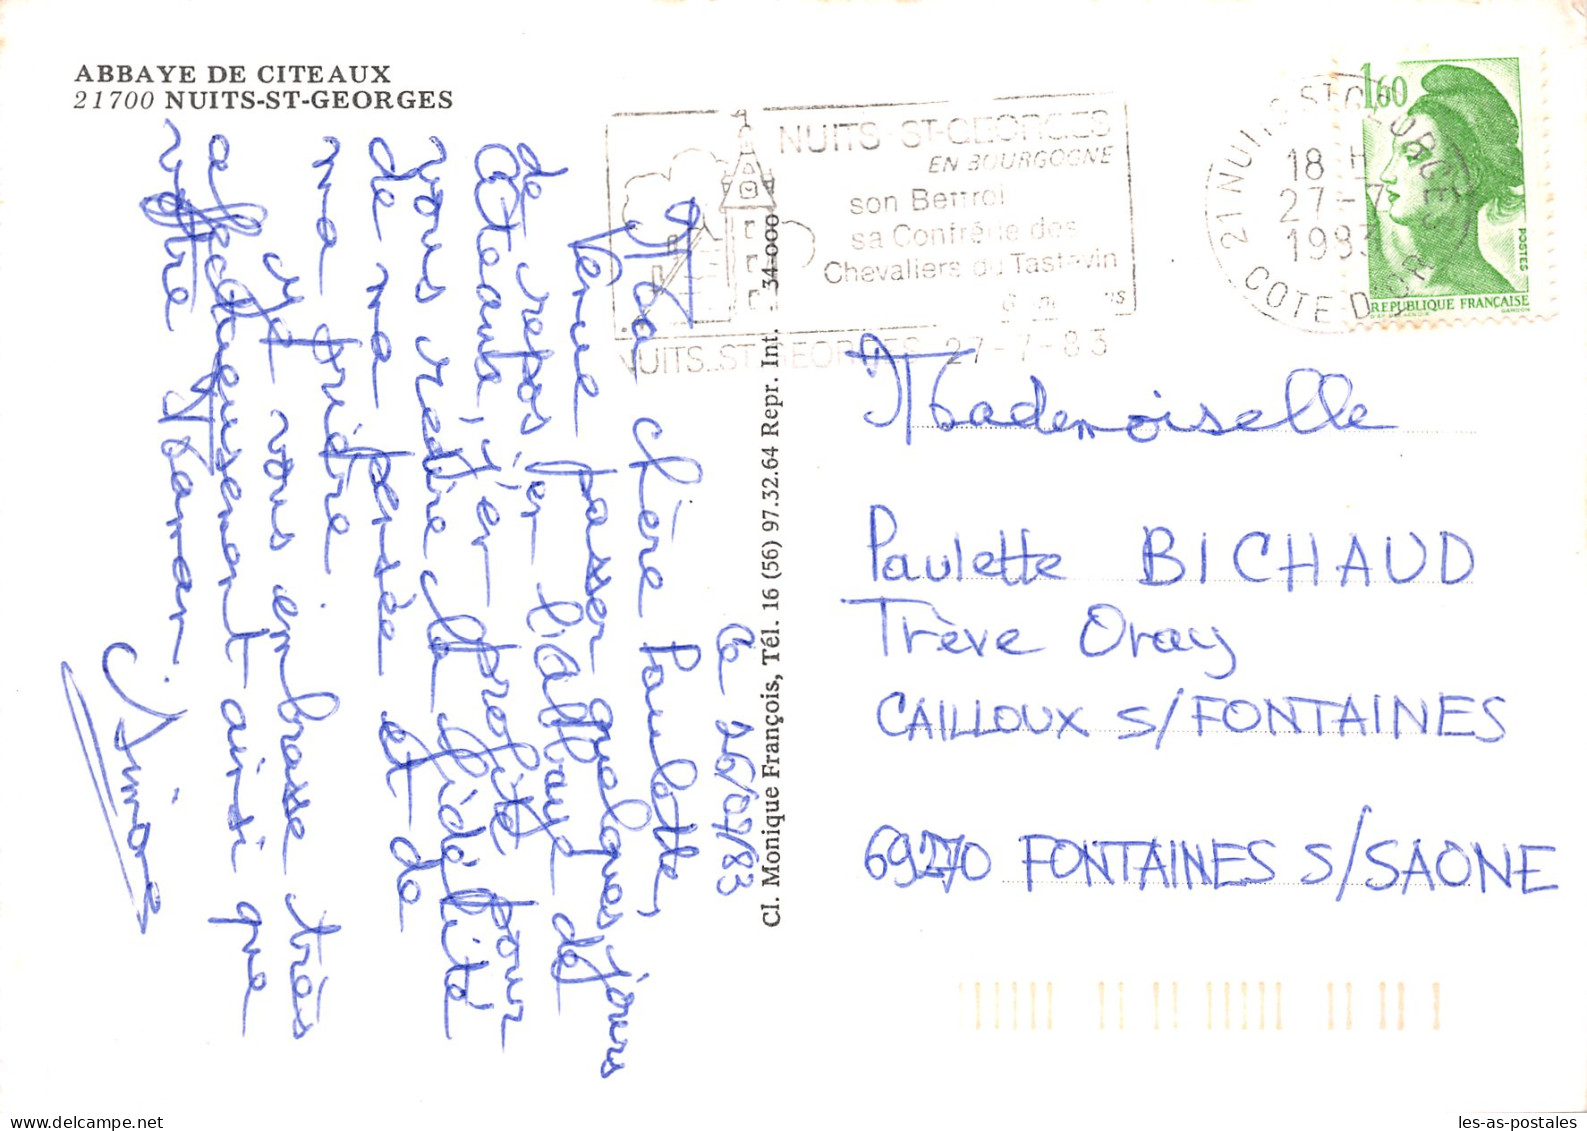 ABBAYE DE CITEAUX
21700 NUITS-ST-GEORGES
NUITS-ST-GEORGES
EN BOURGOGNE
son Beffroi
sa Confrérie des
Chevaliers du Tastevin
NUITS-ST-GEORGES 27-7-83
21 NUITS ST GEORGES
18 H
27-7
1983
COTE D'OR
1,60
POSTES
REPUBLIQUE FRANÇAISE
D'AP. DELACROIX
GANDON
Ce 26/07/83
Ma chère Paulette,
Venue passer quelques jours
de repos, en l'abbaye de
Cîteaux, j'en profite pour
vous redire la fidélité
de ma pensée et de
ma prière
Je vous embrasse très
affectueusement ainsi que
votre Maman
Simone
Cl. Monique François, Tél. 16 (56) 97.32.64 Repr. Int. - 34 000
Mademoiselle
Paulette BICHAUD
Trève Oray
CAILLOUX S/FONTAINES
69270 FONTAINES S/SAONE
les-as-postales